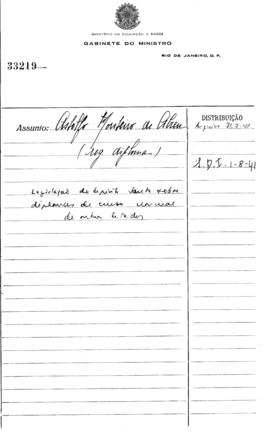 MINISTÉRIO DA EDUCAÇÃO E SAÚDE
GABINETE DO MINISTRO
RIO DE JANEIRO, D. F.
33219
Assunto: Astolfo Monteiro de Abreu
(reg diploma)
Legislação do Espirito Santo sobre
diplomas de curso normal
de outros Estados
DISTRIBUIÇÃO
Arquivo
S.D.I. 1-8-41